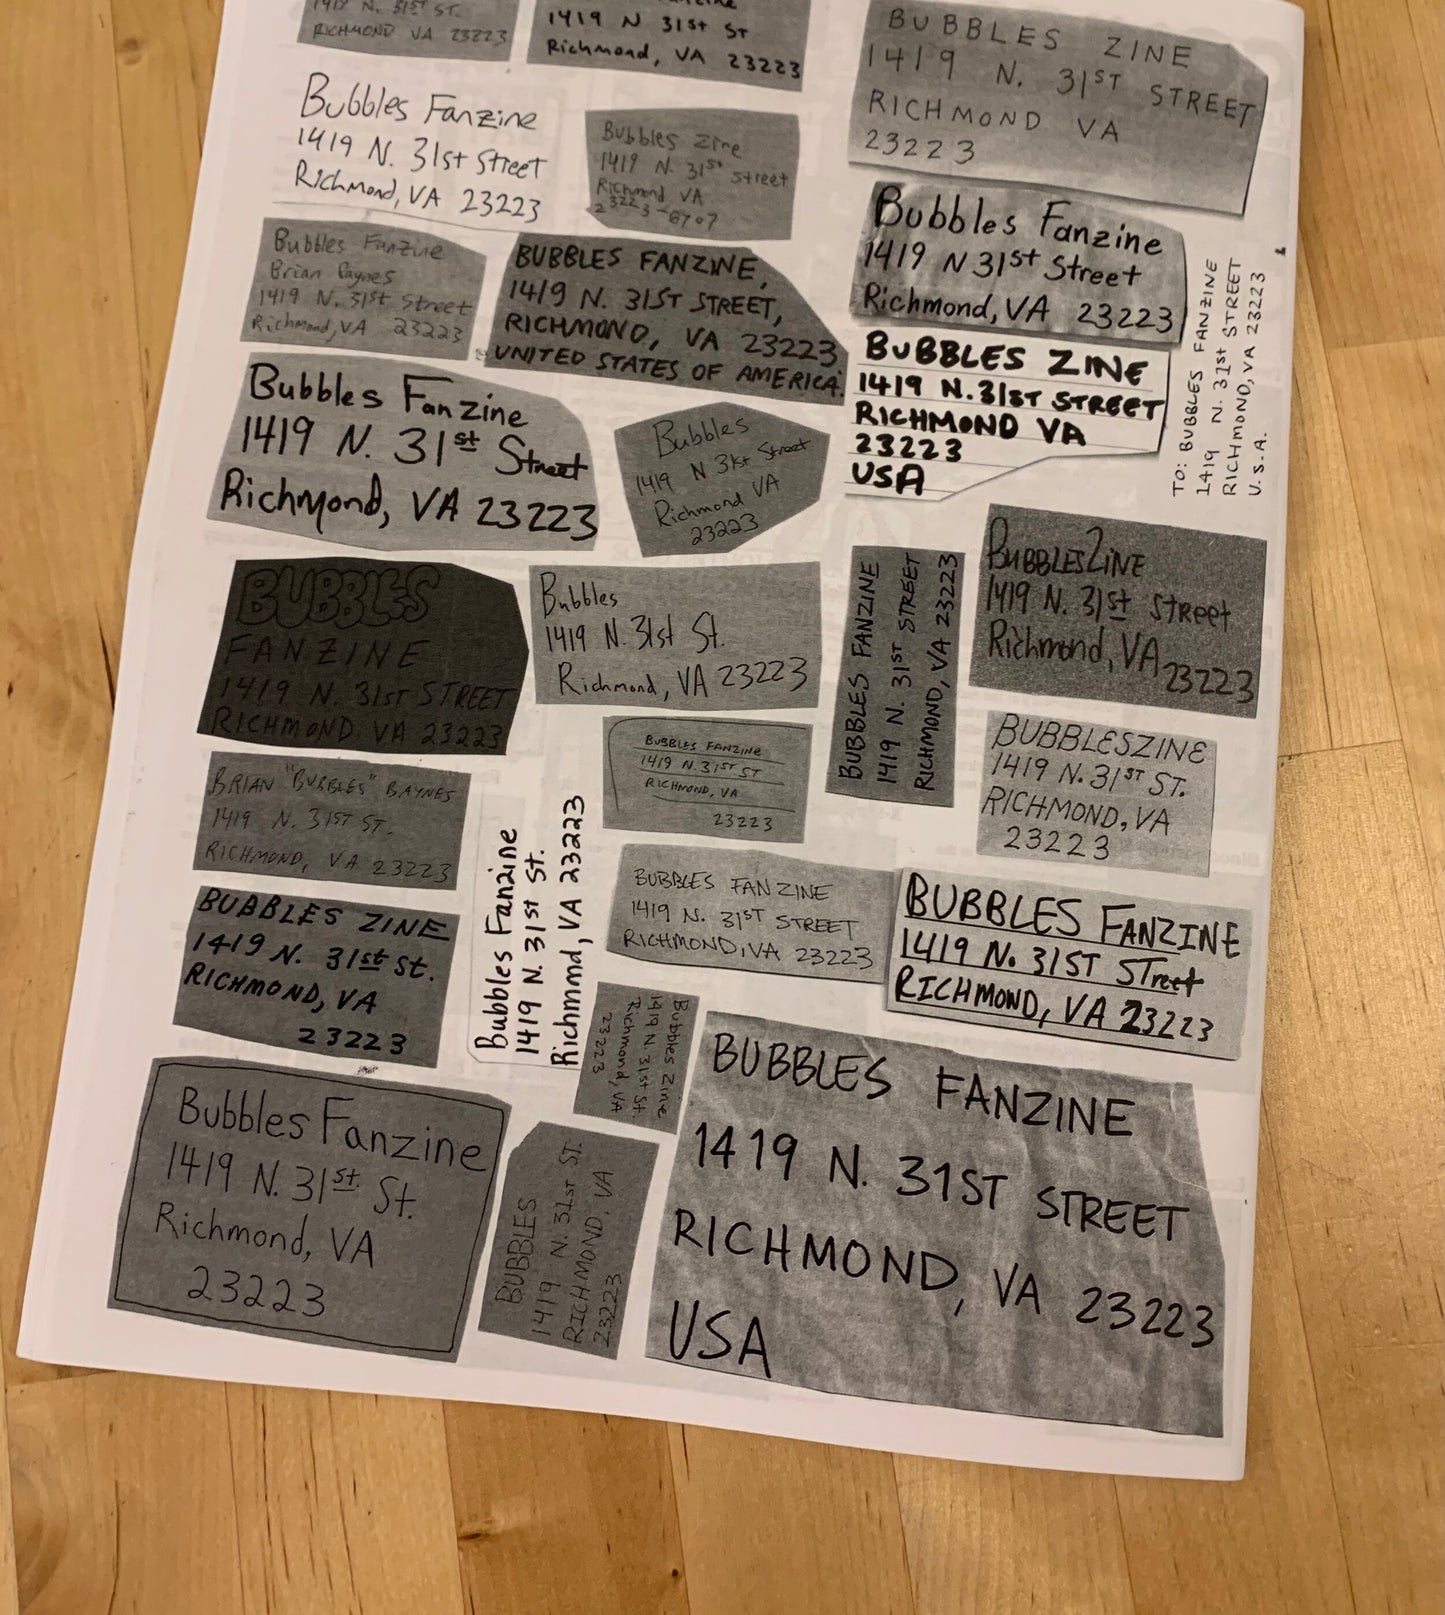 1419 N. 31ST ST.
RICHMOND VA 23223
1419 N 31st St
Richmond, VA 23223
BUBBLES ZINE
1419 N. 31ST STREET
RICHMOND VA
23223
Bubbles Fanzine
1419 N. 31st Street
Richmond, VA 23223
Bubbles Zine
1419 N. 31st street
Richmond VA
23223-6707
Bubbles Fanzine
1419 N 31st Street
Richmond, VA 23223
TO: BUBBLES FANZINE
1419 N. 31st STREET
RICHMOND, VA 23223
U.S.A.
Bubbles Fanzine
Brian Baynes
1419 N. 31st Street
Richmond, VA 23223
BUBBLES FANZINE,
1419 N. 31ST STREET,
RICHMOND, VA 23223
UNITED STATES OF AMERICA.
BUBBLES ZINE
1419 N. 31ST STREET
RICHMOND VA
23223
USA
Bubbles Fanzine
1419 N. 31st Street
Richmond, VA 23223
Bubbles
1419 N 31st Street
Richmond VA
23223
BUBBLES
FANZINE
1419 N. 31ST STREET
RICHMOND VA 23223
Bubbles
1419 N. 31st St.
Richmond, VA 23223
BUBBLES FANZINE
1419 N. 31ST STREET
RICHMOND, VA 23223
BUBBLES ZINE
1419 N. 31st Street
Richmond, VA 23223
BRIAN "BUBBLES" BAYNES
1419 N. 31ST ST.
RICHMOND, VA 23223
BUBBLES FANZINE
1419 N. 31ST ST
RICHMOND, VA
23223
BUBBLESZINE
1419 N. 31ST ST.
RICHMOND, VA
23223
BUBBLES ZINE
1419 N. 31st St.
RICHMOND, VA
23223
Bubbles Fanzine
1419 N. 31st St.
Richmmd, VA 23223
BUBBLES FANZINE
1419 N. 31ST STREET
RICHMOND, VA 23223
BUBBLES FANZINE
1419 N. 31ST STreet
RICHMOND, VA 23223
Bubbles Zine
1419 N. 31st St.
Richmond, VA
23223
Bubbles Fanzine
1419 N. 31st. St.
Richmond, VA
23223
BUBBLES
1419 N. 31st ST.
RICHMOND, VA
23223
BUBBLES FANZINE
1419 N. 31ST STREET
RICHMOND, VA 23223
USA